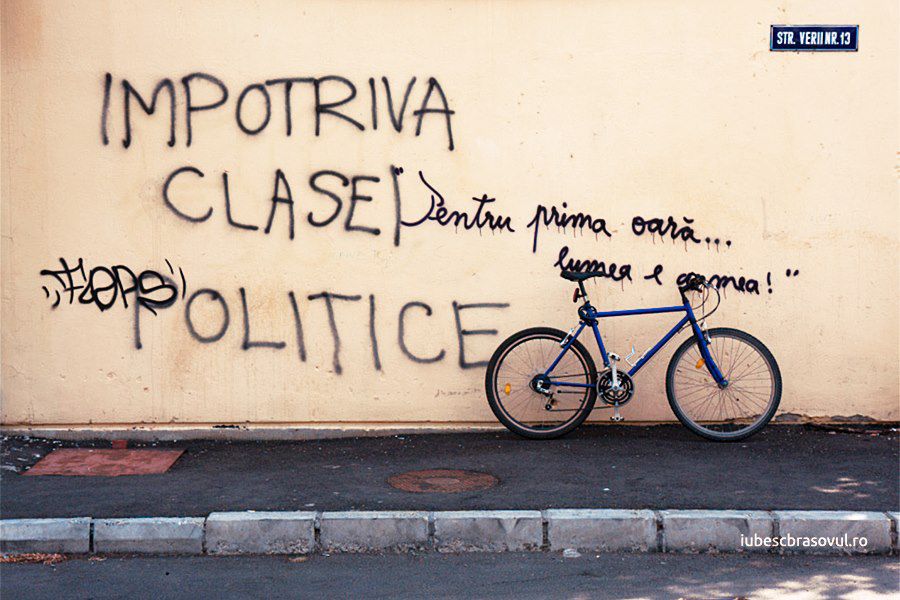 STR. VERII NR. 13
IMPOTRIVA
CLASEI
"Pentru prima oară...
lumea e a mea!"
POLITICE
iubescbrasovul.ro